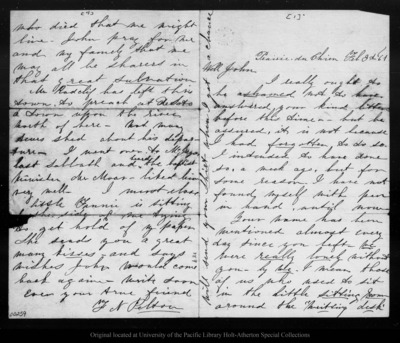 [1]
Prairie du Chien Feb 3d/61
Well John,
I really ought to
be ashamed not to have
answered your kind letter
before this time. but be
assured, it is not because
I had forgotten to do so
I intended to have done
so, a week ago, but for
some reason I have not
found myself with pen
in hand until now
Your name has been
mentioned almost every
day since you left. We
were really lonely without
you. by We, I mean those
of us who used to sit
in the little sitting room
around the "writing" desk
who died that we might
live. John pray for me
and my family that we
may all be sharers in
that great salvation
Mr has left this
town. to preach at De Soto
a town upon the river
north of here. Not many
shed about his
I went over to Mc
last sabbath and the
Minister Mr Moar liked him
very well. I must close
Little Fannie is sitting
side of me trying
to get hold of my paper
She sends you a great
many kisses and says
wishes John would come
back again. Write soon
Ever your true friend
F. N. Pelton
will send you when I get a chance
00259
Original located at University of the Pacific Library Holt-Atherton Special Collections